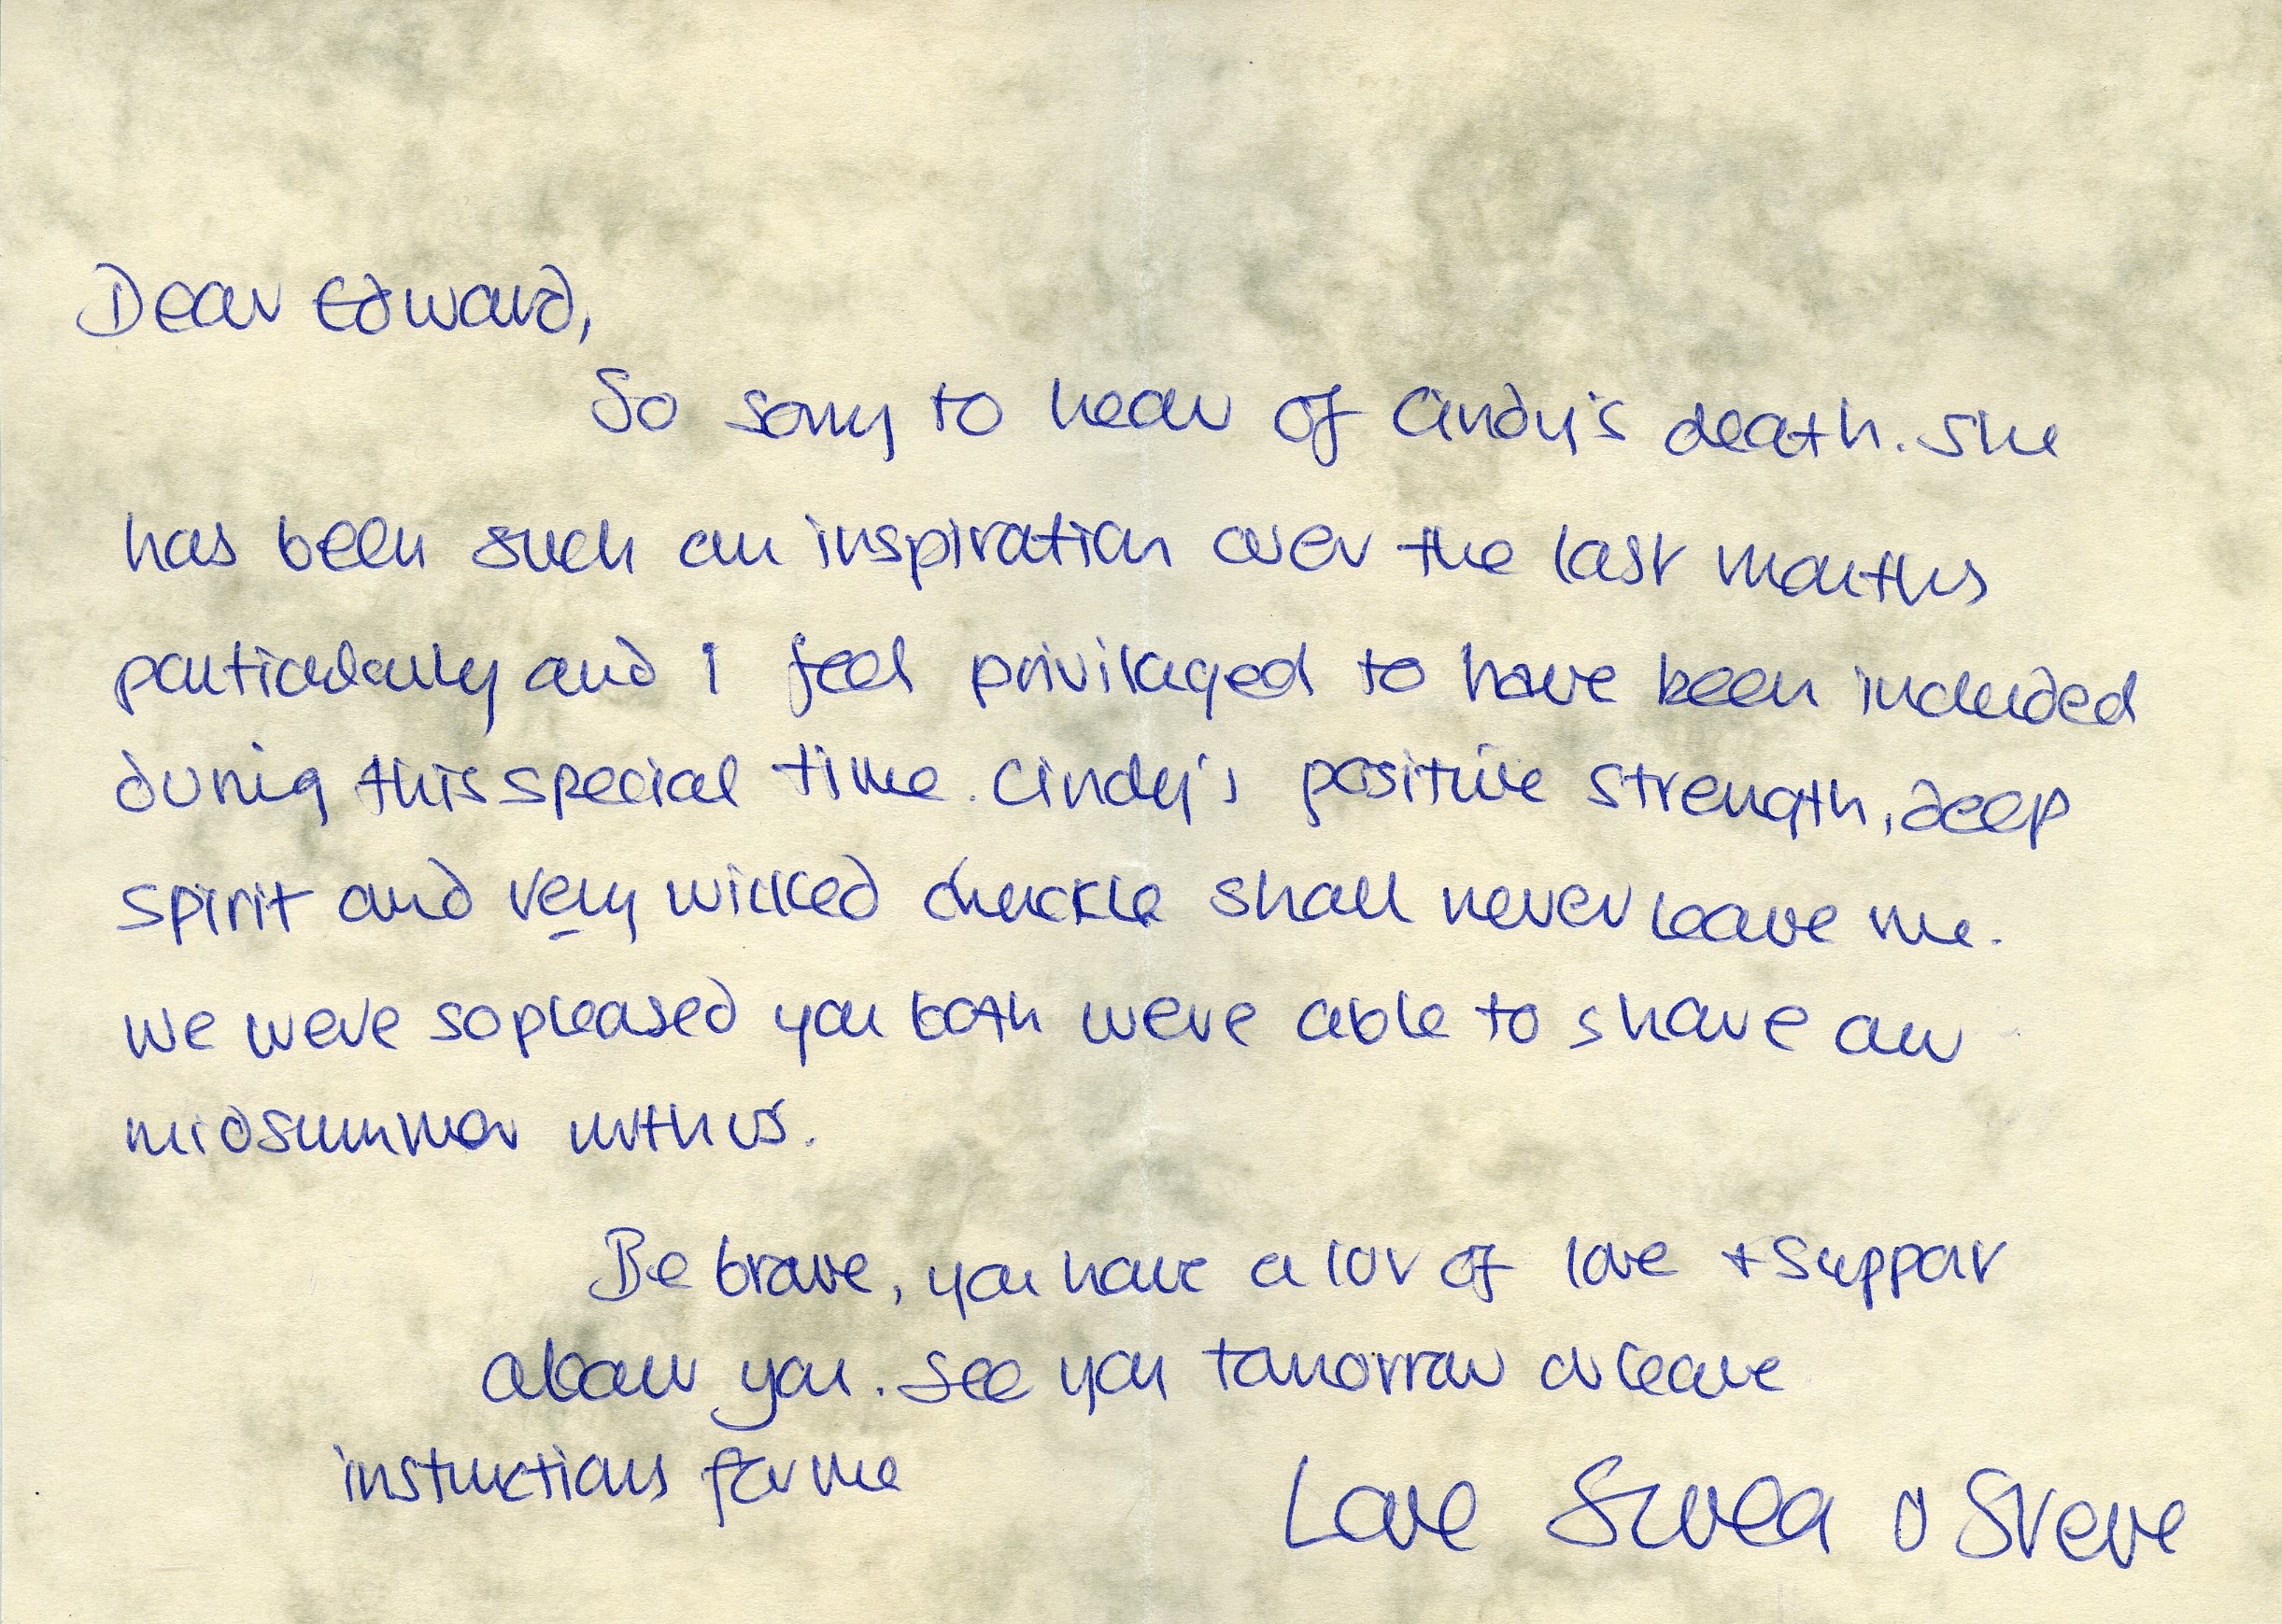 Dear Edward,
So sorry to hear of Cindy's death. She
has been such an inspiration over the last months
particularly and I feel privilaged to have been included
during this special time. Cindy's positive strength, deep
spirit and very wicked chuckle shall never leave me.
We were so pleased you both were able to share our
midsummer with us.
Be brave, you have a lot of love + support
about you. See you tomorrow or leave
instructions for me
Love Svvea o Steve